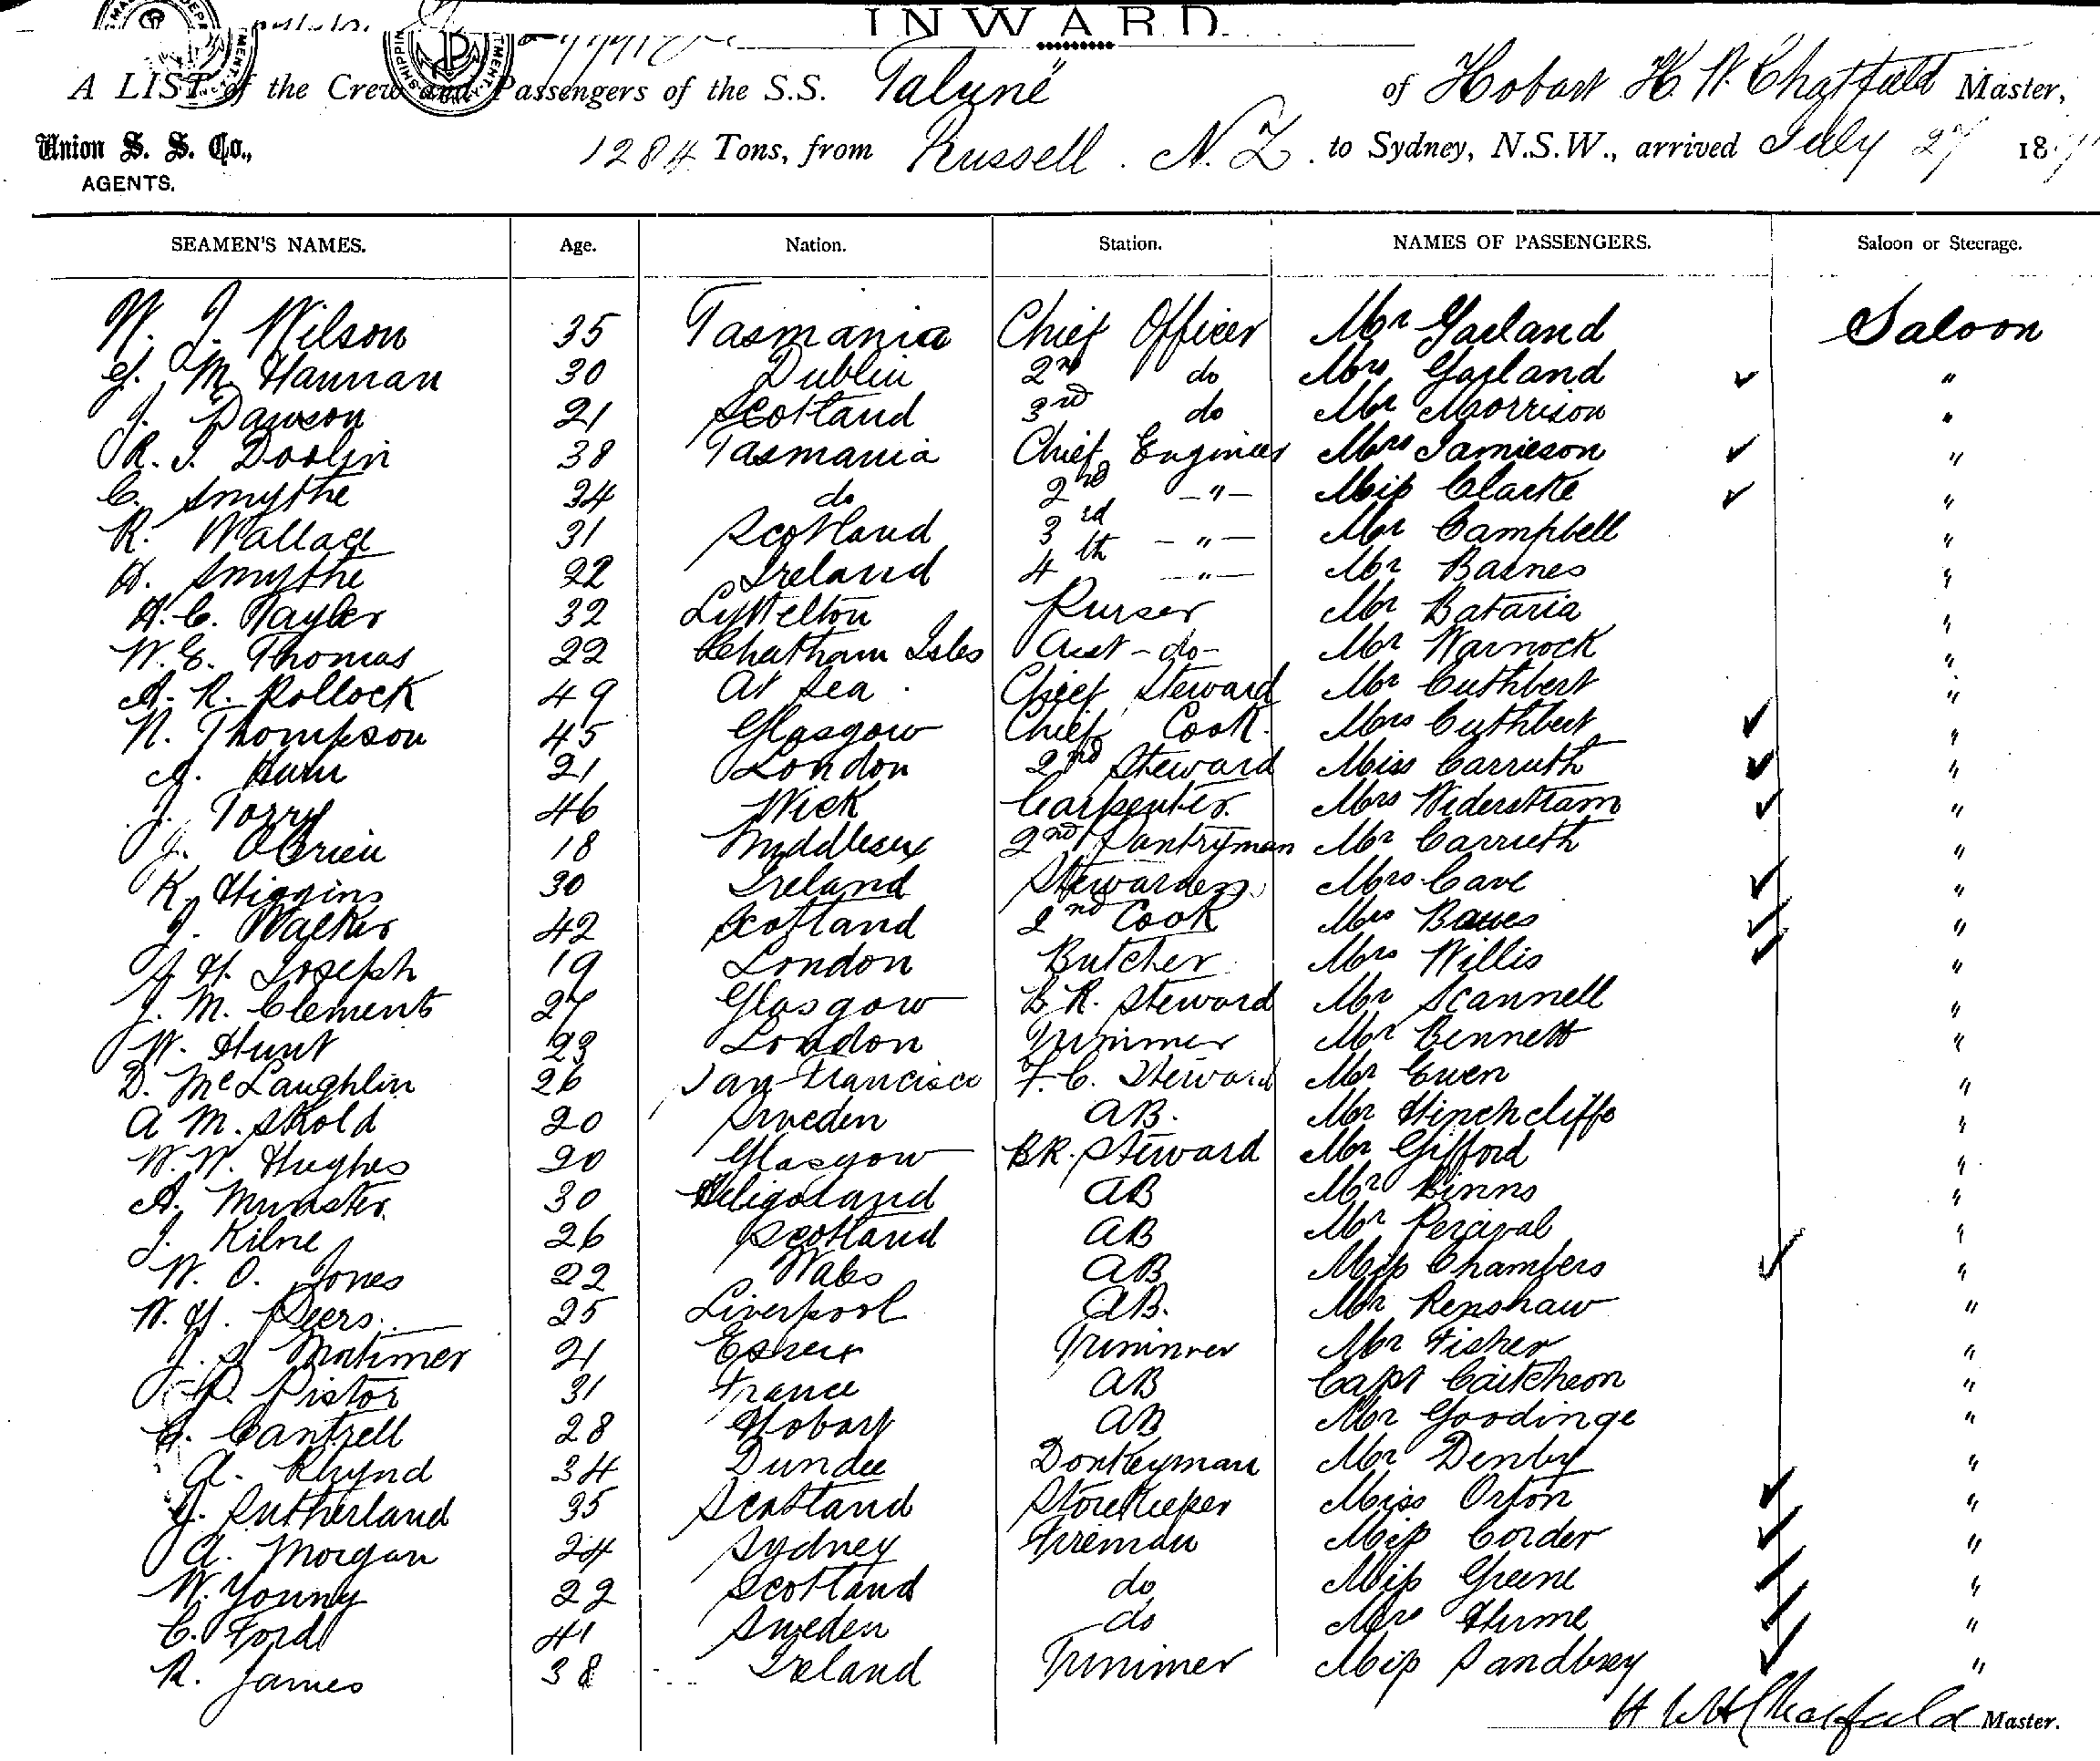 INWARD
A LIST of the Crew and Passengers of the S.S. Talune of Hobart H. W. Chatfield Master,
Union S. S. Co., 1284 Tons, from Russell. N.Z. to Sydney, N.S.W., arrived July 27 18
AGENTS.
SEAMEN'S NAMES. Age. Nation. Station. NAMES OF PASSENGERS. Saloon or Steerage.
W. J. Wilson 35 Tasmania Chief Officer Mr Garland Saloon
G. M. Hannan 30 Dublin 2nd do Mrs Garland ✓ "
J. Dawson 21 Scotland 3rd do Mr Morrison "
R. J. Doolin 38 Tasmania Chief Engineer Mrs Jamieson ✓ "
C. Smythe 34 do 2nd -"- Miss Clarke ✓ "
R. Wallace 31 Scotland 3rd -"- Mr Campbell "
H. Smythe 22 Ireland 4th -"- Mr Barnes "
H. C. Tayler 32 Lyttelton Purser Mr Bataria "
W. E. Thomas 22 Chatham Isles Asst -do- Mr Warnock "
A. R. Pollock 49 At Sea Chief Steward Mr Cuthbert "
N. Thompson 45 Glasgow Chief Cook. Mrs Cuthbert ✓ "
J. Hum 21 London 2nd Steward Miss Carruth ✓ "
J. Torry 46 Wick Carpenter. Mrs Widerstram ✓ "
J. OBrien 18 Middlesex 2nd Pantryman Mr Carruth "
K. Higgins 30 Ireland Stewardess Mrs Cave ✓ "
J. Walker 42 Scotland 2nd Cook Mrs Bawes ✓ "
J H. Joseph 19 London Butcher Mrs Willis ✓ "
J. M. Clements 27 Glasgow B. R. Steward Mr Scannell "
W. Hunt 23 London Trimmer Mr Bennett "
D. McLaughlin 26 San Francisco F. C. Steward Mr Ewen "
A M. Skold 20 Sweden AB. Mr Hinchcliffe "
W. W. Hughes 20 Glasgow BR. Steward Mr Gifford "
A. Munster. 30 Heligoland AB Mr Binns "
J. Kilne 26 Scotland AB Mr Percival "
W. O. Jones 22 Wales AB Miss Chambers ✓ "
W. H. Peers. 25 Liverpool AB. Mr Renshaw "
J. S Mortimer 21 Essex Trimmer Mr Fisher "
P. Pistor 31 France AB Capt Caitcheon "
C. Cantrell 28 Hobart AB Mr Goodinge "
A. Rhynd 34 Dundee Donkeyman Mr Denby "
J. Sutherland 35 Scotland Storekeeper Miss Orton ✓ "
A. Morgan 24 Sydney Fireman Miss Corder ✓ "
W. Young 22 Scotland do Miss Greene ✓ "
C. Ford 41 Sweden do Mrs Hume ✓ "
R. James 38 Ireland Trimmer Miss Sandbrey ✓ "
H W Chatfield Master.